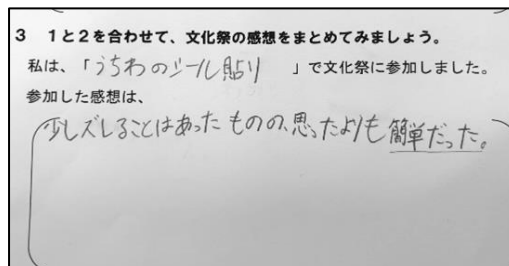 3 1と2を合わせて、文化祭の感想をまとめてみましょう。
私は、「うちわのシール貼り」で文化祭に参加しました。
参加した感想は、
少しズレることはあったものの、思ったよりも簡単だった。